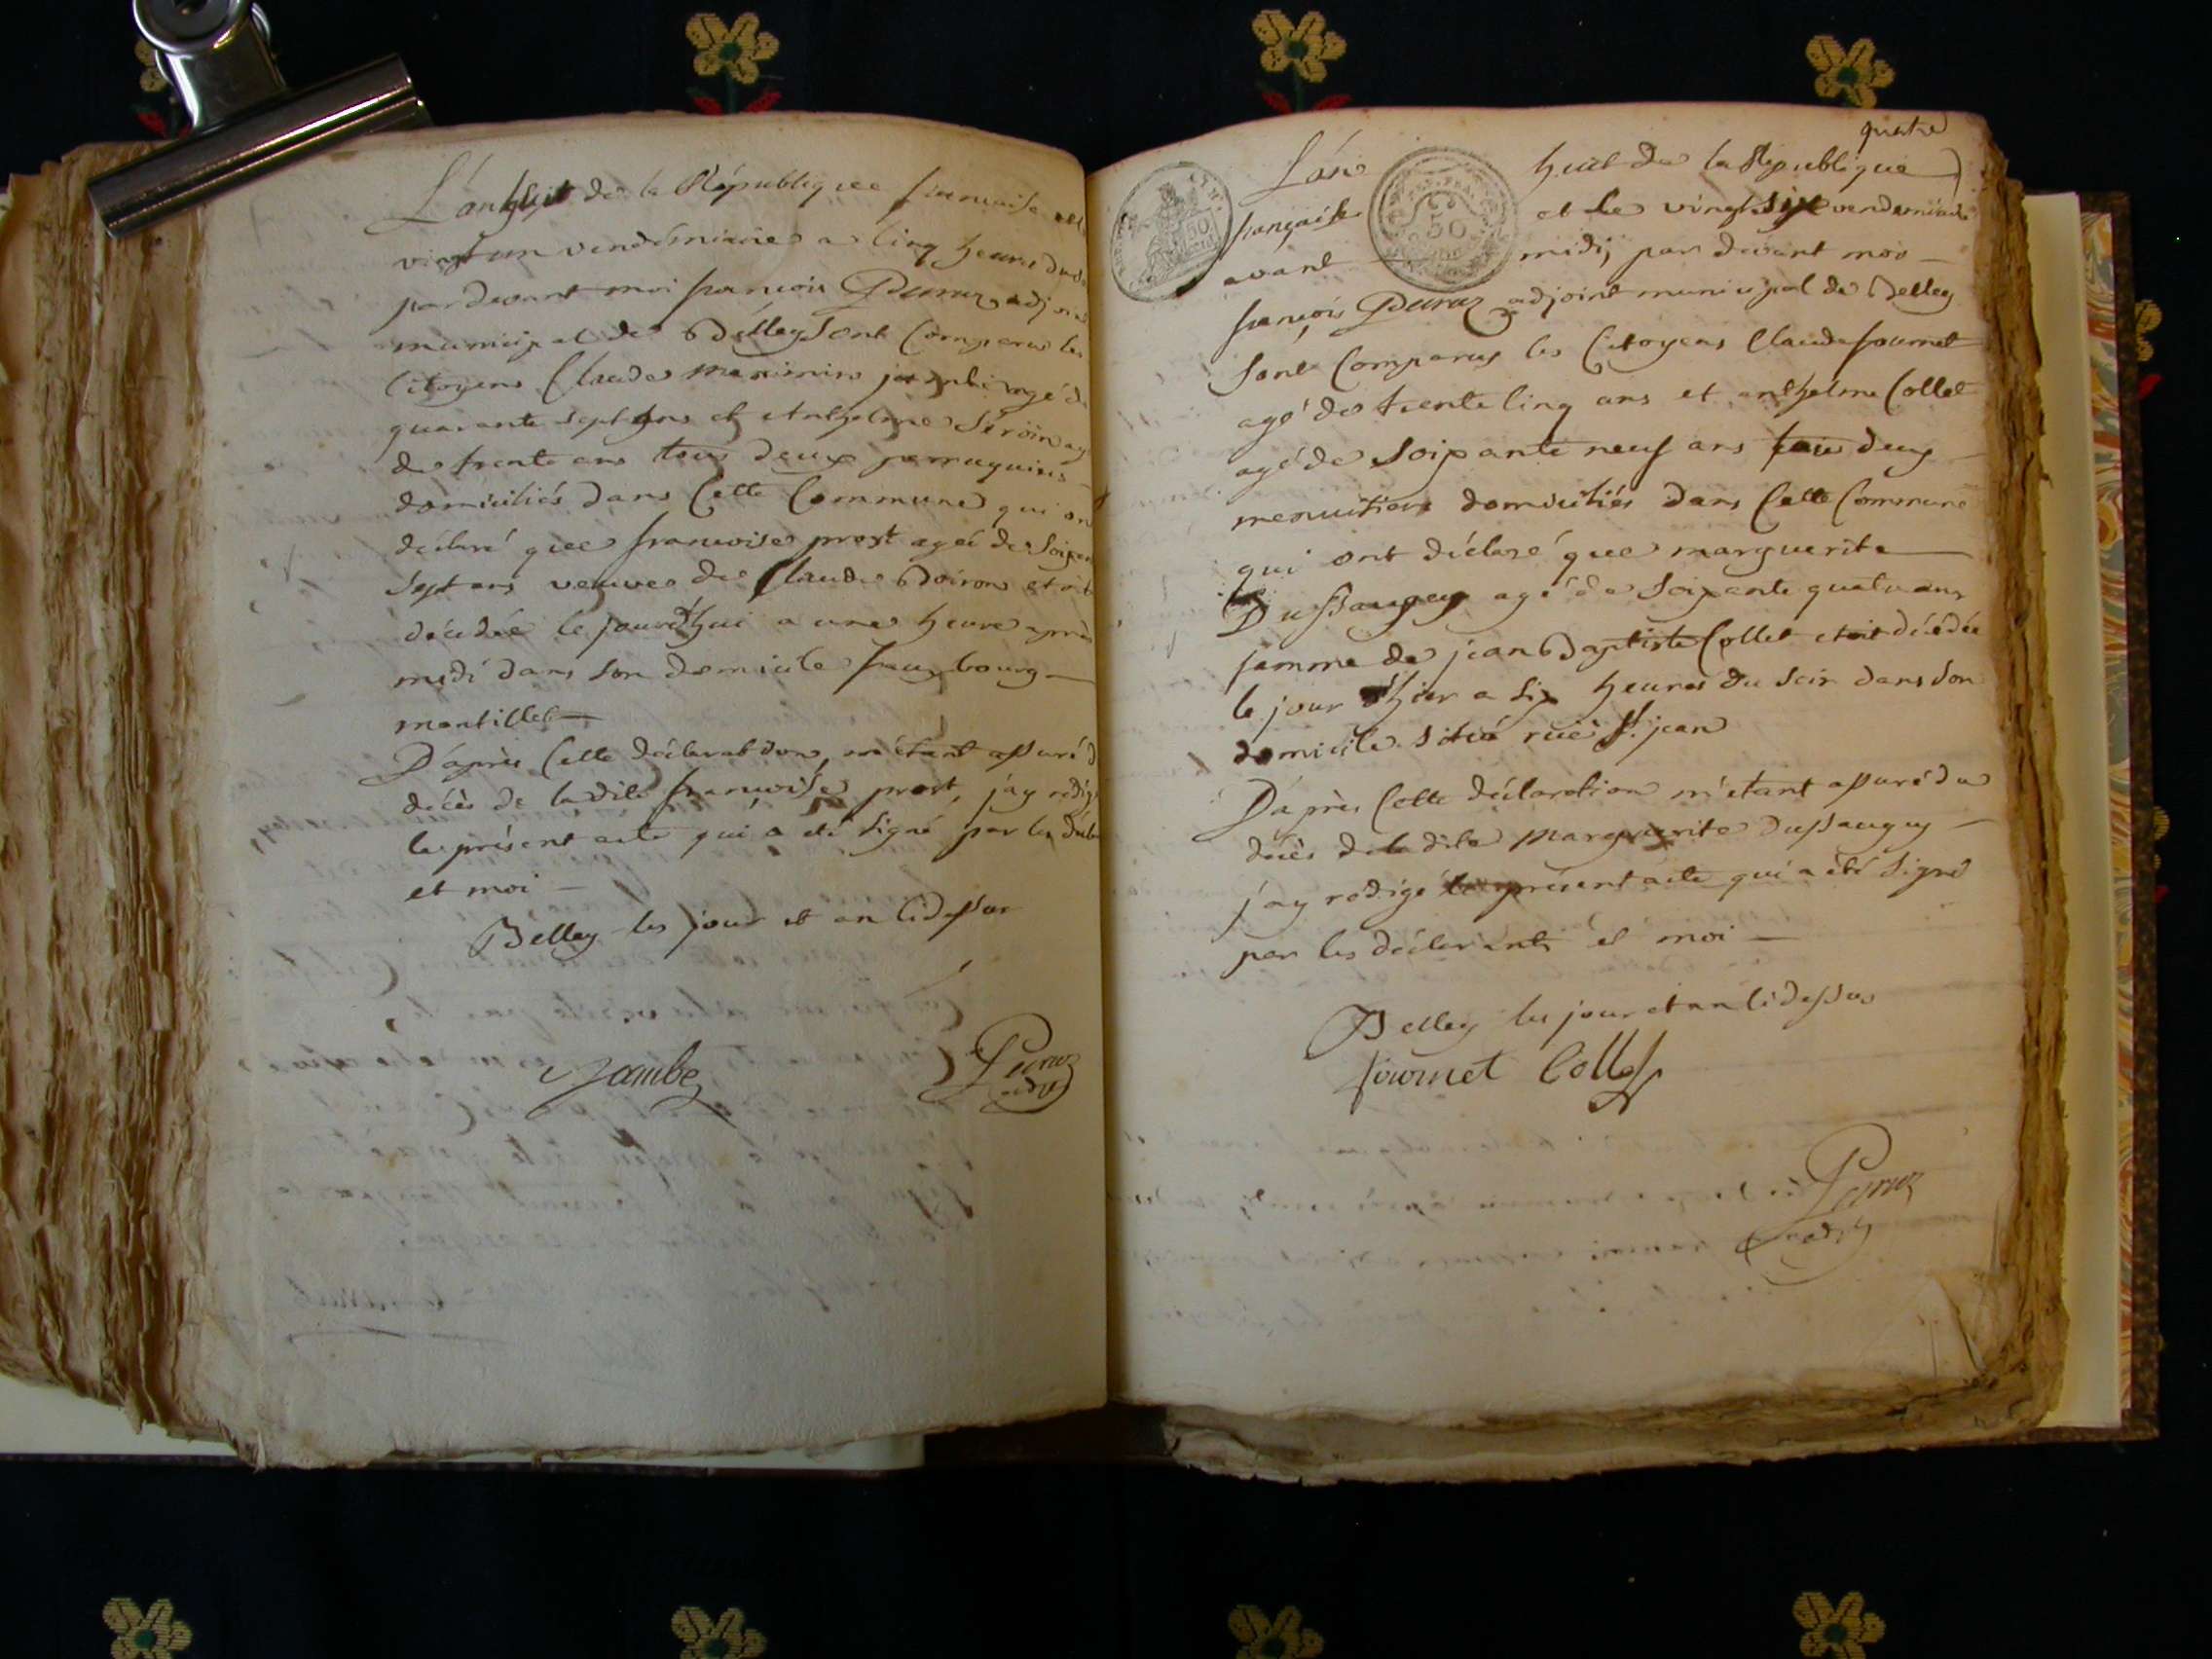 L'an huit de la République francaise et le
vingt un vendémiaire a cinq heures du
pardevant moi francois Peuroz adjoint
municipal de Belley sont Comparus les
Citoyens Claude maximin jambe agé de
quarante sept ans et Anthelme Siroin agé
de trente ans tous deux perruquiers
domiciliés dans Cette Commune qui on
déclaré que francoise prost agée de Soixan
Sept ans veuve de Claude Boiron etoit
décédée le jourdhui a une heure après
midi dans son domicile fauxbourg
mantillet
D'après Cette déclaration, m'étant assuré d
décès de ladite francoise prost, j'ay rédigé
le présent acte qui a été signé par les décla
et moi
Belley les jour et an cidessus
jambe Peuroz
adj
quatre
L'an huit de la République
française et le vingt six vendemiaire
avant midi, par devant moi
françois Peuroz adjoint municipal de Belley
sont Comparus les Citoyens Claude fournet
agé de trente cinq ans et anthelme Collet
agé de soixante neuf ans tous deux
menuitiers domiciliés dans Cette Commune
qui ont déclaré que marguerite
Dussaugey agé de soixante quatre ans
famme de jean Baptiste Collet etoit décédée
le jour d'hier a six heures du soir dans son
domicile situé rue St. jean
D'après Cette déclaration m'étant assuré du
décès de la dite marguerite Dussaugey
j'ay rédigé le présent acte qui a été signé
par les déclarants et moi
Belley les jour et an cidessus
fournet Collet
Peuroz
adj
50